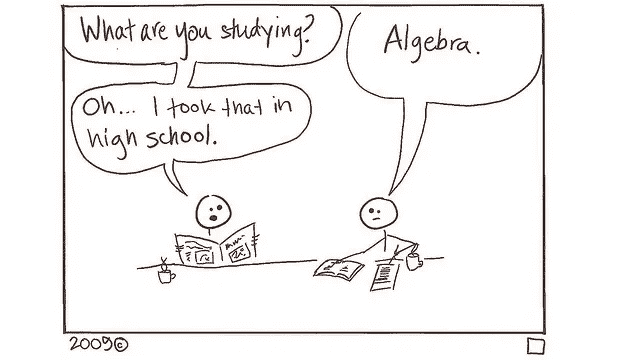 What are you studying?
Algebra.
Oh... I took that in
high school.
2009©